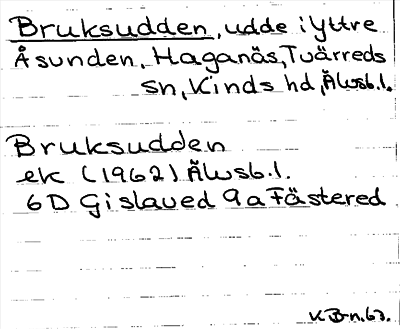 Bruksudden, udde i Yttre
Åsunden, Haganäs, Tvärreds
Sn, Kinds hd, Älvsb.l.
Bruksudden
ek (1962) Älvsb.l.
6D Gislaved 9a Fästered